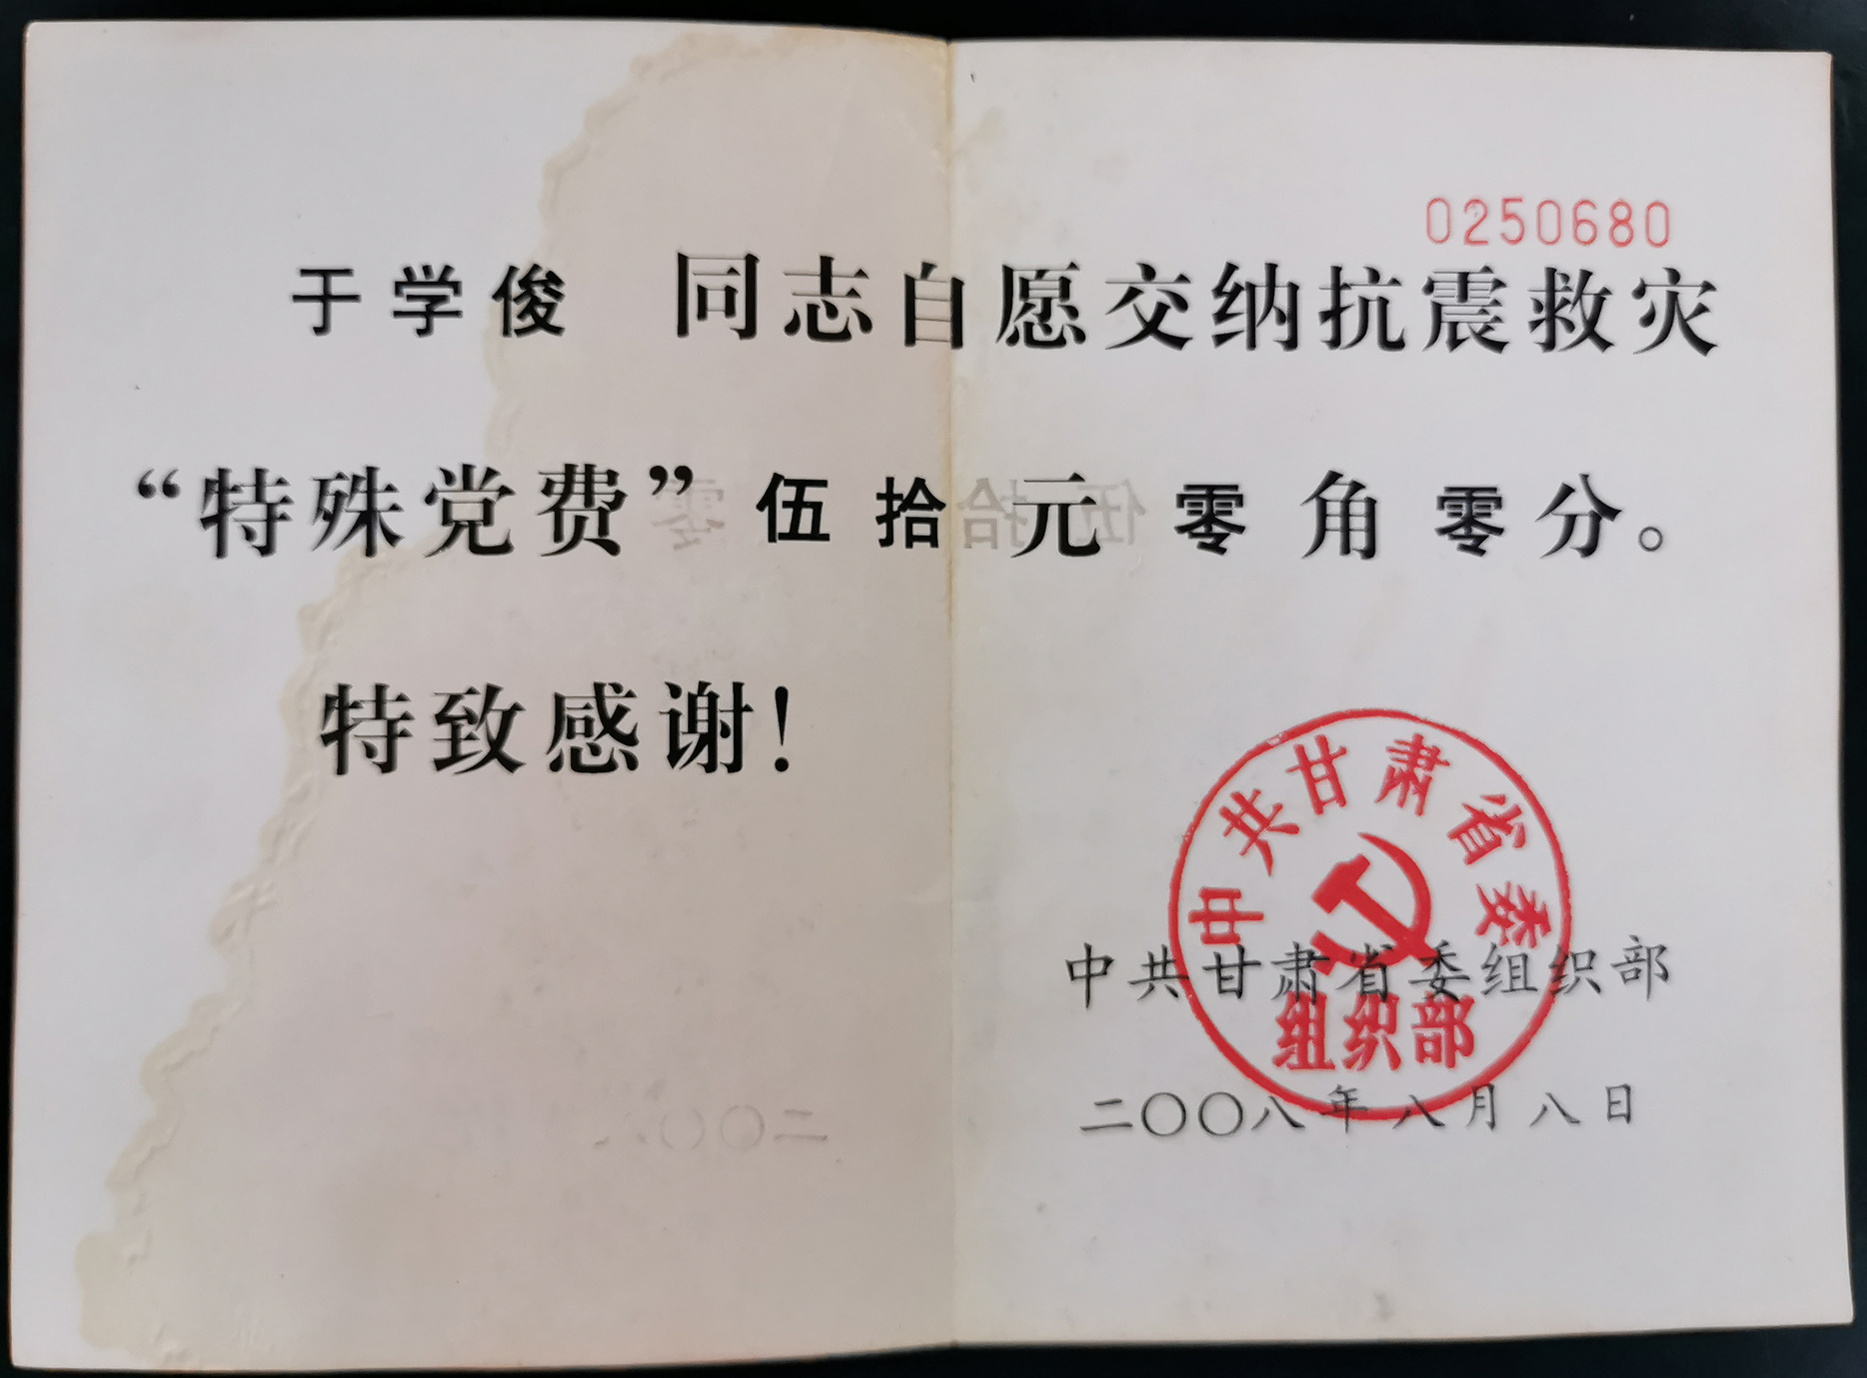 0250680
于学俊 同志自愿交纳抗震救灾
“特殊党费”伍拾元零角零分。
特致感谢！
中共甘肃省委
组织部
中共甘肃省委组织部
二〇〇八年八月八日